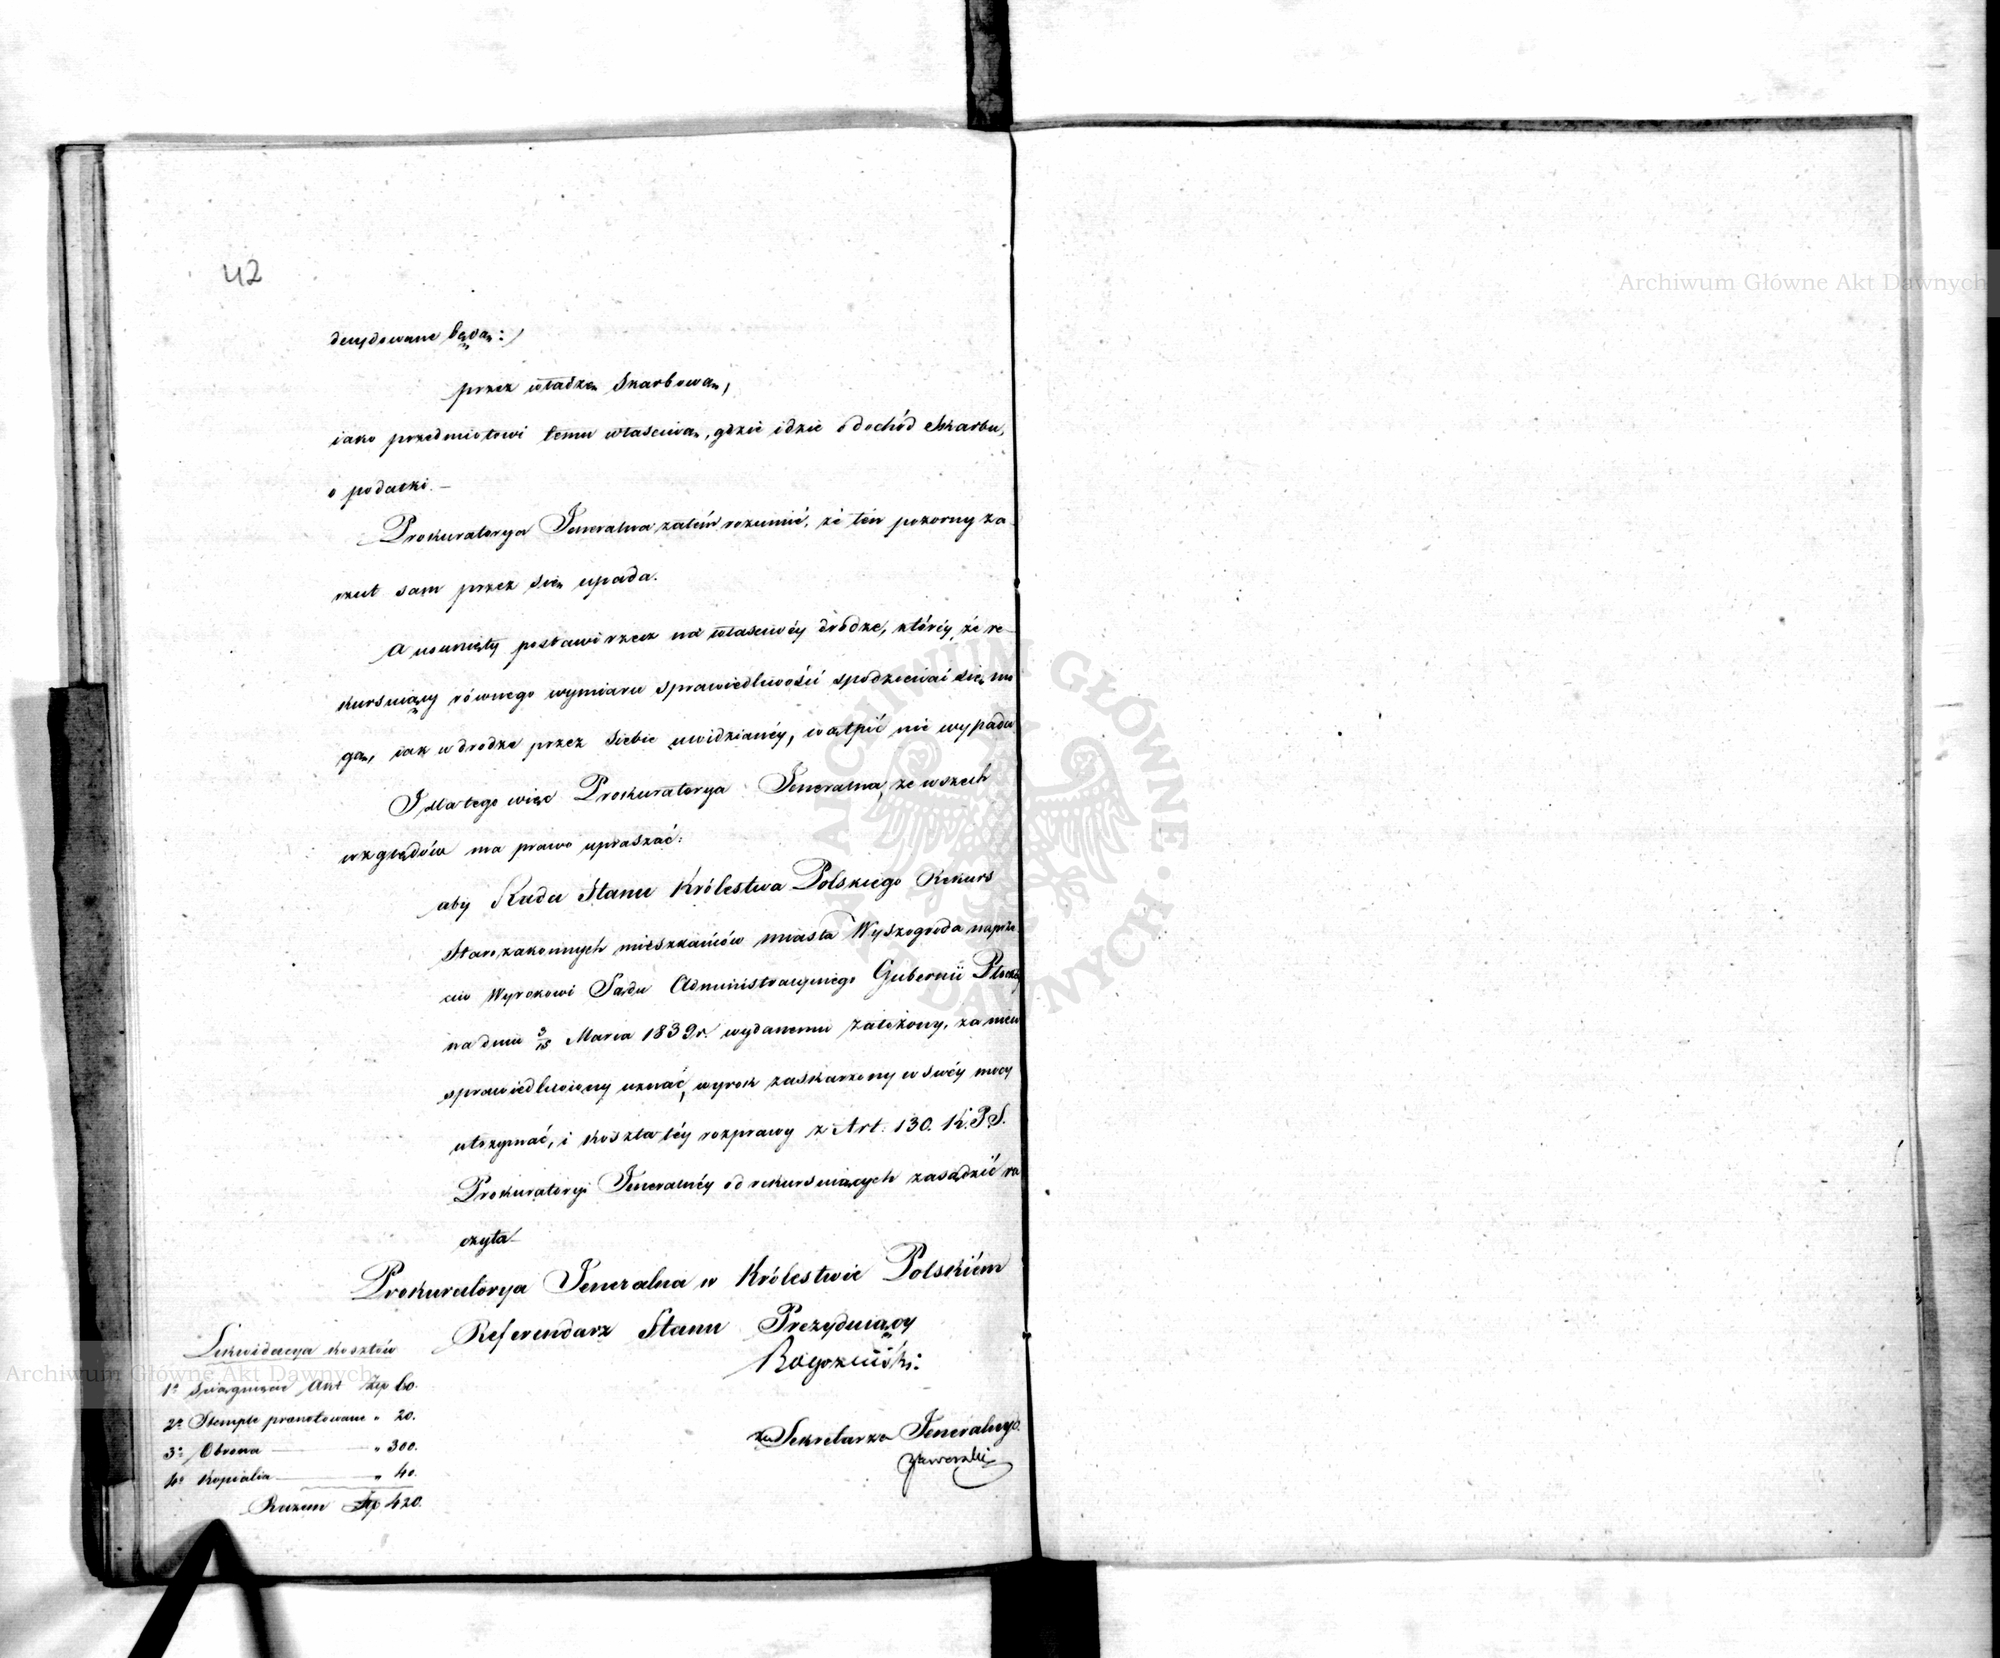 42
decydowane będą:)
przez władzę skarbową,
iako przedmiotowi temu właściwą, gdzie idzie o dochód skarbu,
o podatki. —
Prokuratorya Jeneralna zatém rozumié, że ten pozorny za-
rzut sam przez się upada.
A usunięty postawi rzecz na właściwéy drodze, któréy, że re-
kursuiący równego wymiaru sprawiedliwości spodziewać się mo
gą, iak w drodze przez siebie uwidzianéy, wątpić nie wypada
I dla tego więc Prokuratorya Jeneralna, ze wszech
względów ma prawo upraszać:
aby Rada Stanu Królestwa Polskiego Rekurs
Starozakonnych mieszkańców miasta Wyszogroda naprze-
ciw Wyrokowi Sądu Administracyinego Gubernii Płockiéy
na dniu 3/15 Marca 1839 r. wydanemu założony, za nieu
sprawiedliwiony uznać, wyrok zaskarżony w swéy mocy
utrzymać, i koszta téy rozprawy z Art: 130. K.P.S.
Prokuratoryi Jeneralnéy od rekursuiących zasądzić ra
czyła
Prokuratorya Jeneralna w Królestwie Polskiém
Referendarz Stanu Prezyduiący
Likwidacya kosztów
1o Sciągnięcie Akt Złp 60.
2o Stemple prenotowane " 20.
3o Obrona — " 300.
4o Kopialia — " 40.
Razem Złp 420.
za Sekretarza Jeneralnego
Archiwum Główne Akt Dawnych
Archiwum Główne Akt Dawnych
ARCHIWUM GŁÓWNE AKT DAWNYCH